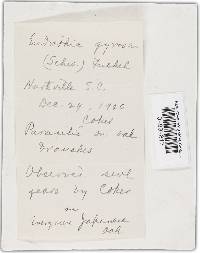 Endothia gyrosa
(Schw.) Fuckel
Hartsville S.C.
Dec. 24, 1920
Coker
Parasitic on oak
branches
Observed sev'l
years by Coker
on
evergreen Japanese
oak